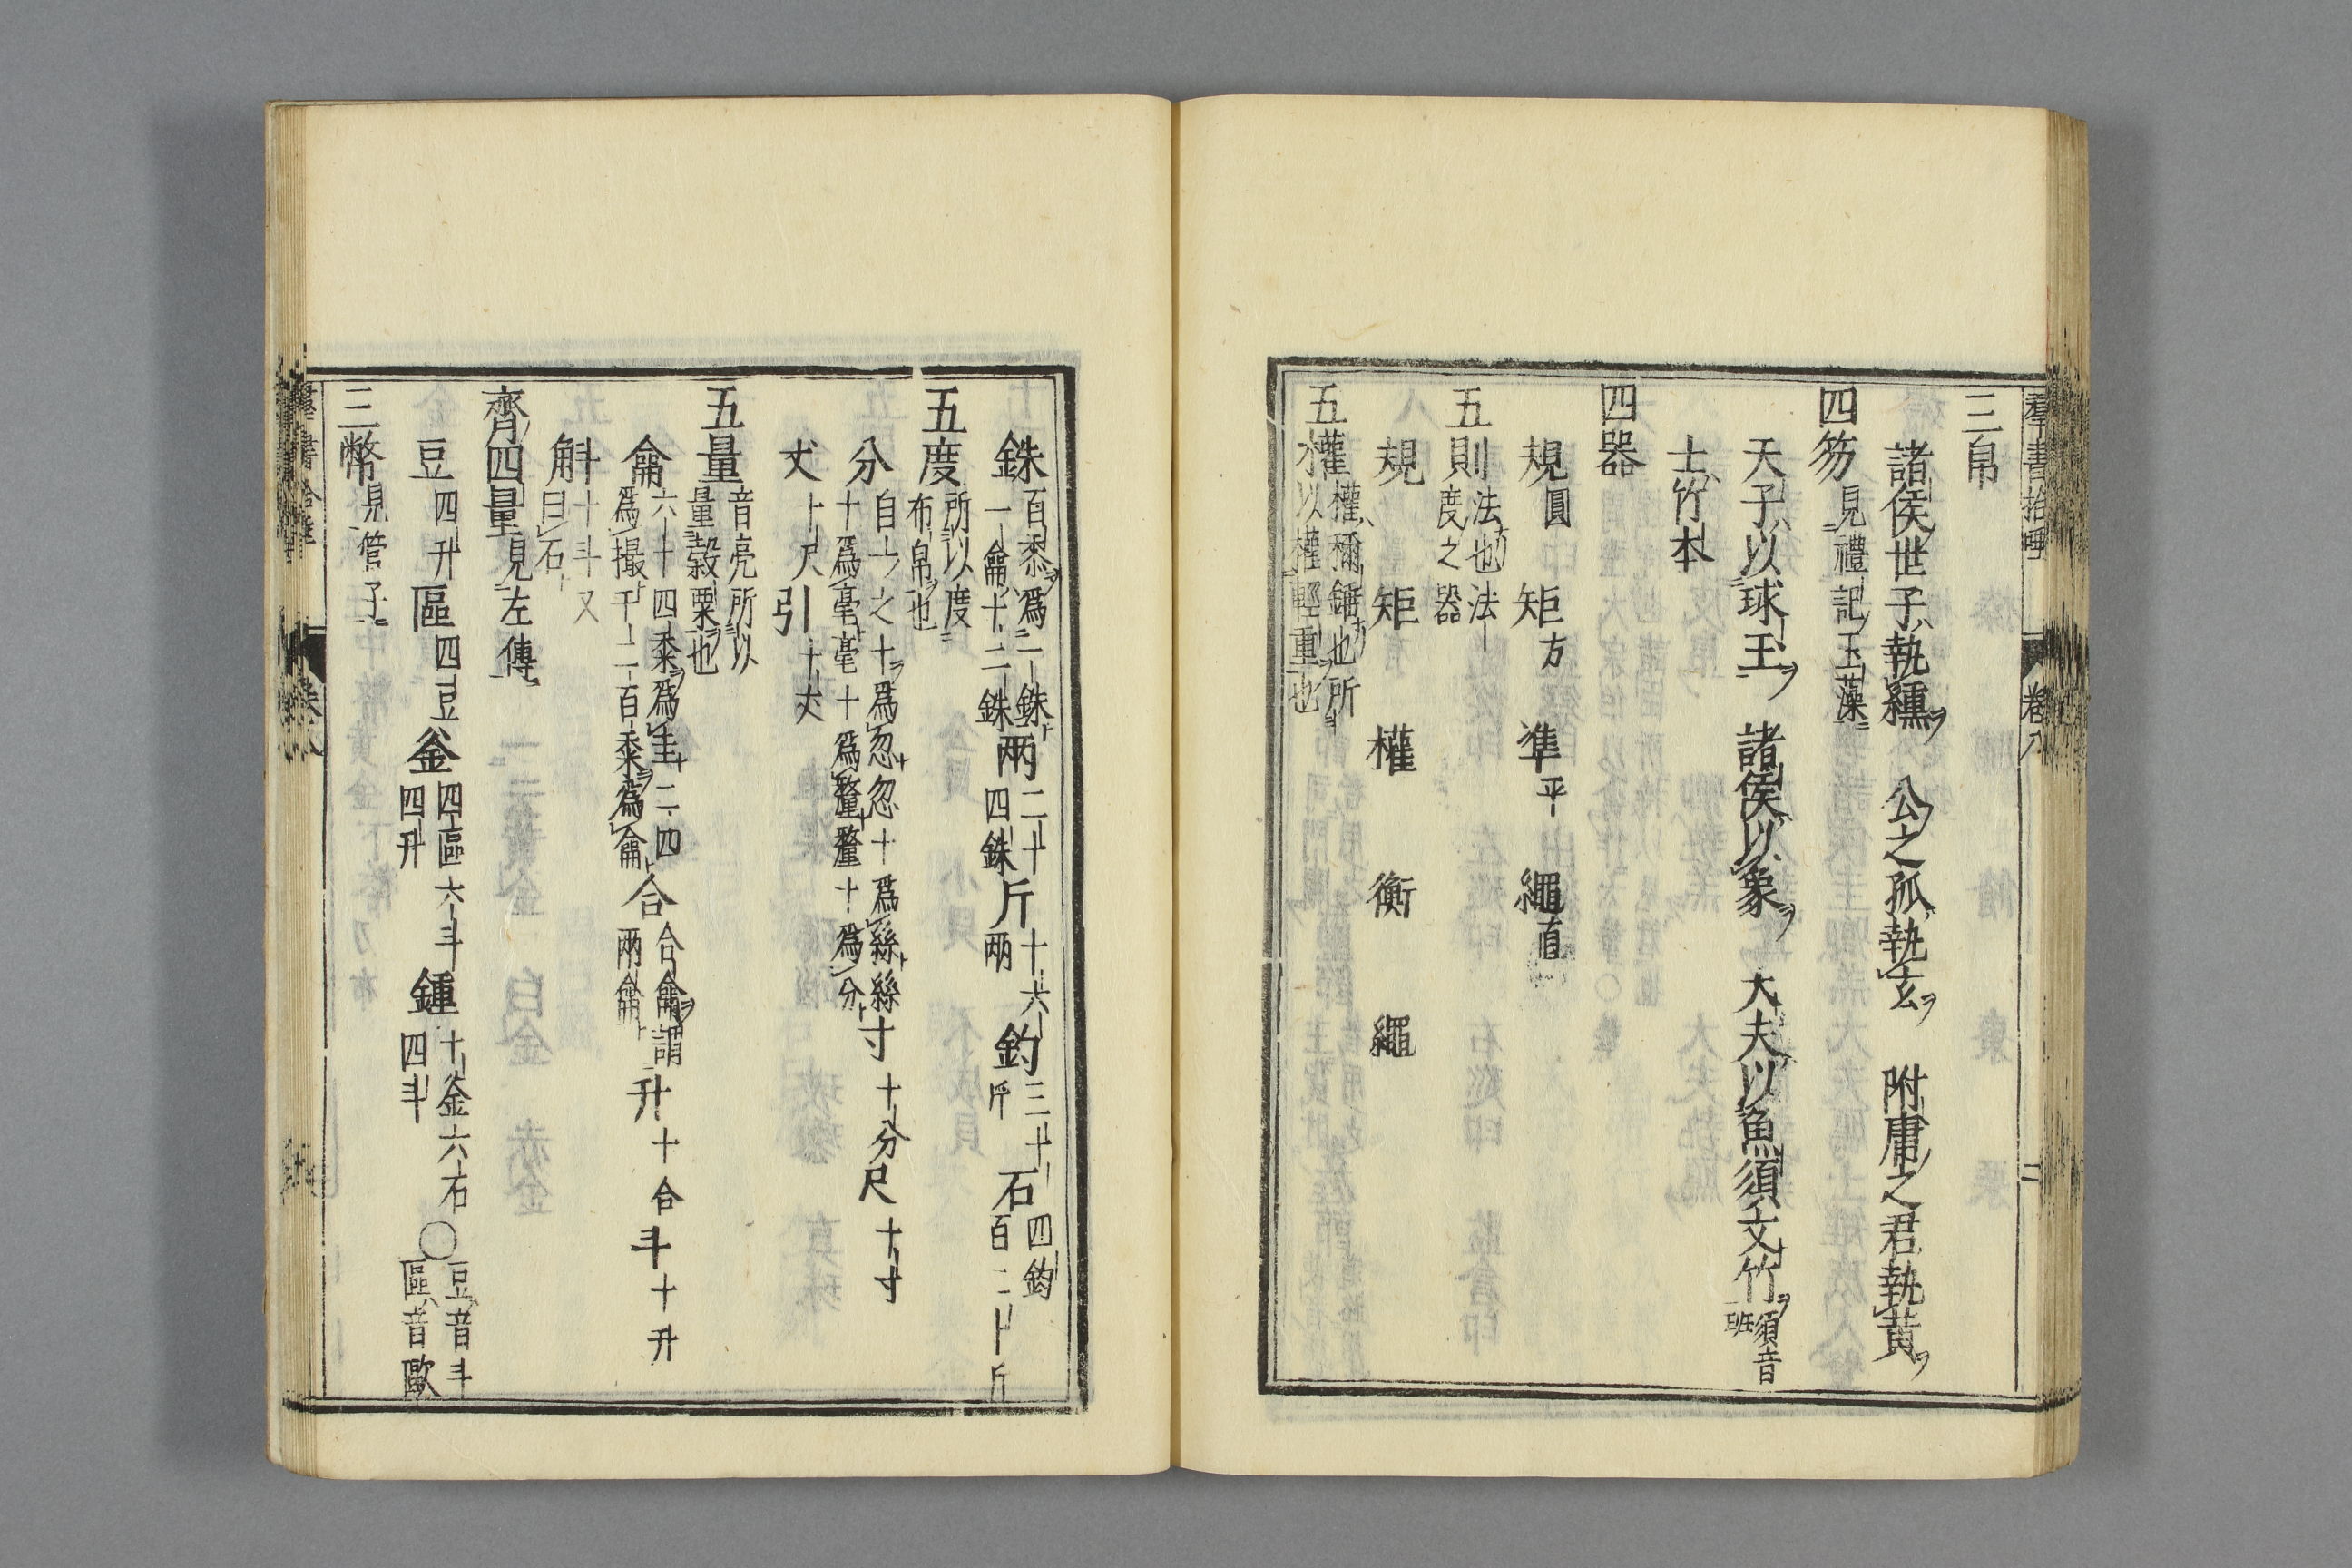 羣書拾唾 卷八 二
三帛
諸侯世子執纁 公之孤執玄 附庸之君執黃
四笏 見禮記玉藻
天子以球玉 諸侯以象 大夫以魚須文竹 須音班
士竹本
四器
規 圓 矩 方 準 平 繩 直
五則 法也法度之器
規 矩 權 衡 繩
五權 權稱錘也所以權輕重也
銖 百黍爲二銖一龠十二銖 兩 二十四銖 斤 十六兩 鈞 三十斤 石 四鈞百二十斤
五度 所以度布帛也
分 自一之十爲忽忽十爲絲絲十爲毫毫十爲釐釐十爲分 寸 十分 尺 十寸
丈 十尺 引 十丈
五量 音亮所以量穀粟也
龠 六十四黍爲圭二四爲撮千二百黍爲龠 合 合龠謂兩龠 升 十合 斗 十升
斛 十斗又曰石
齊四量 見左傳
豆 四升 區 四豆 釜 四區六斗四升 鍾 十釜六石四斗 〇 豆音斗區音歐
三幣 見管子